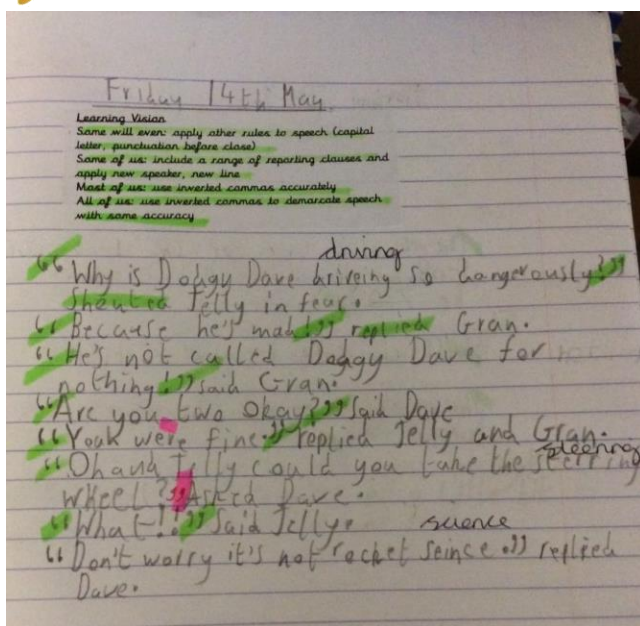 Friday 14th May
Learning Vision
Some will even: apply other rules to speech (capital
letter, punctuation before close)
Some of us: include a range of reporting clauses and
apply new speaker, new line
Most of us: use inverted commas accurately
All of us: use inverted commas to demarcate speech
with some accuracy
driving
“Why is Dodgy Dave driveing so dangerously?”
shouted Jelly in fear.
“Because he's mad!” replied Gran.
“He's not called Dodgy Dave for
nothing!” said Gran.
“Are you two Okay?” said Dave
“Yeah were fine.” replied Jelly and Gran.
steering
“Oh and Jelly could you take the
wheel?” Asked Dave.
“What!!” said Jelly.
science
“Don't worry it's not rocket seince.” replied
Dave.